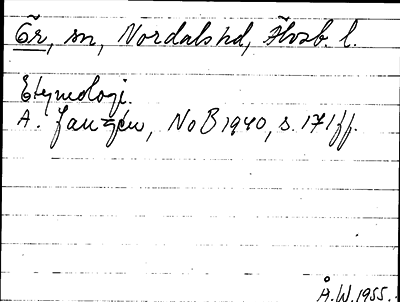 Ör, sn, Nordals hd, Älvsb. l.
Etymologi.
A. Janzén, NoB 1940, s. 171 ff.
Å.W. 1955.